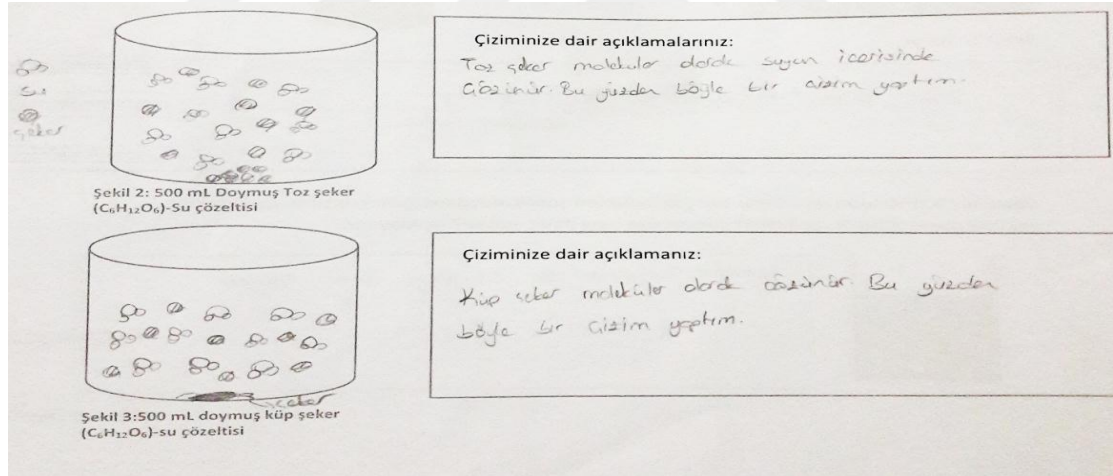 su
şeker
Şekil 2: 500 mL Doymuş Toz şeker
(C₆H₁₂O₆)-Su çözeltisi
Çiziminize dair açıklamalarınız:
Toz şeker moleküler olarak suyun içerisinde
çözünür. Bu yüzden böyle bir çizim yaptım.
şeker
Şekil 3:500 mL doymuş küp şeker
(C₆H₁₂O₆)-su çözeltisi
Çiziminize dair açıklamanız:
Küp şeker moleküler olarak çözünür. Bu yüzden
böyle bir çizim yaptım.